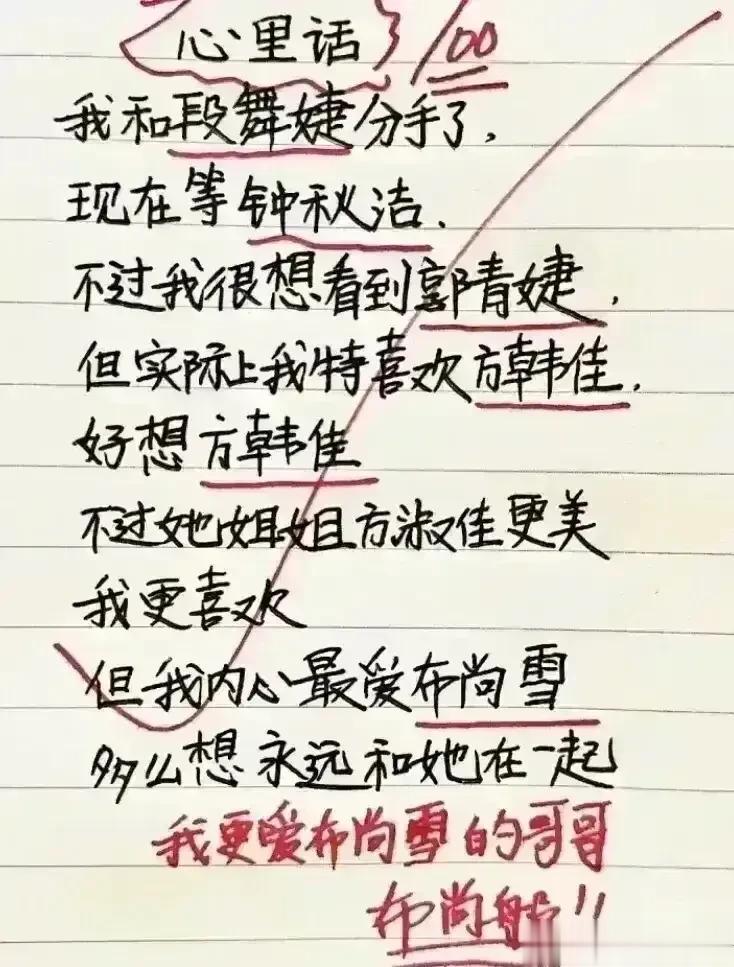 心里话 100
我和段舞婕分手了,
现在等钟秋洁.
不过我很想看到郭清婕,
但实际上我特喜欢方韩佳,
好想方韩佳
不过她姐姐方淑佳更美
我更喜欢
但我内心最爱布尚雪
多么想永远和她在一起
我更爱布尚雪的哥哥
布尚船!!